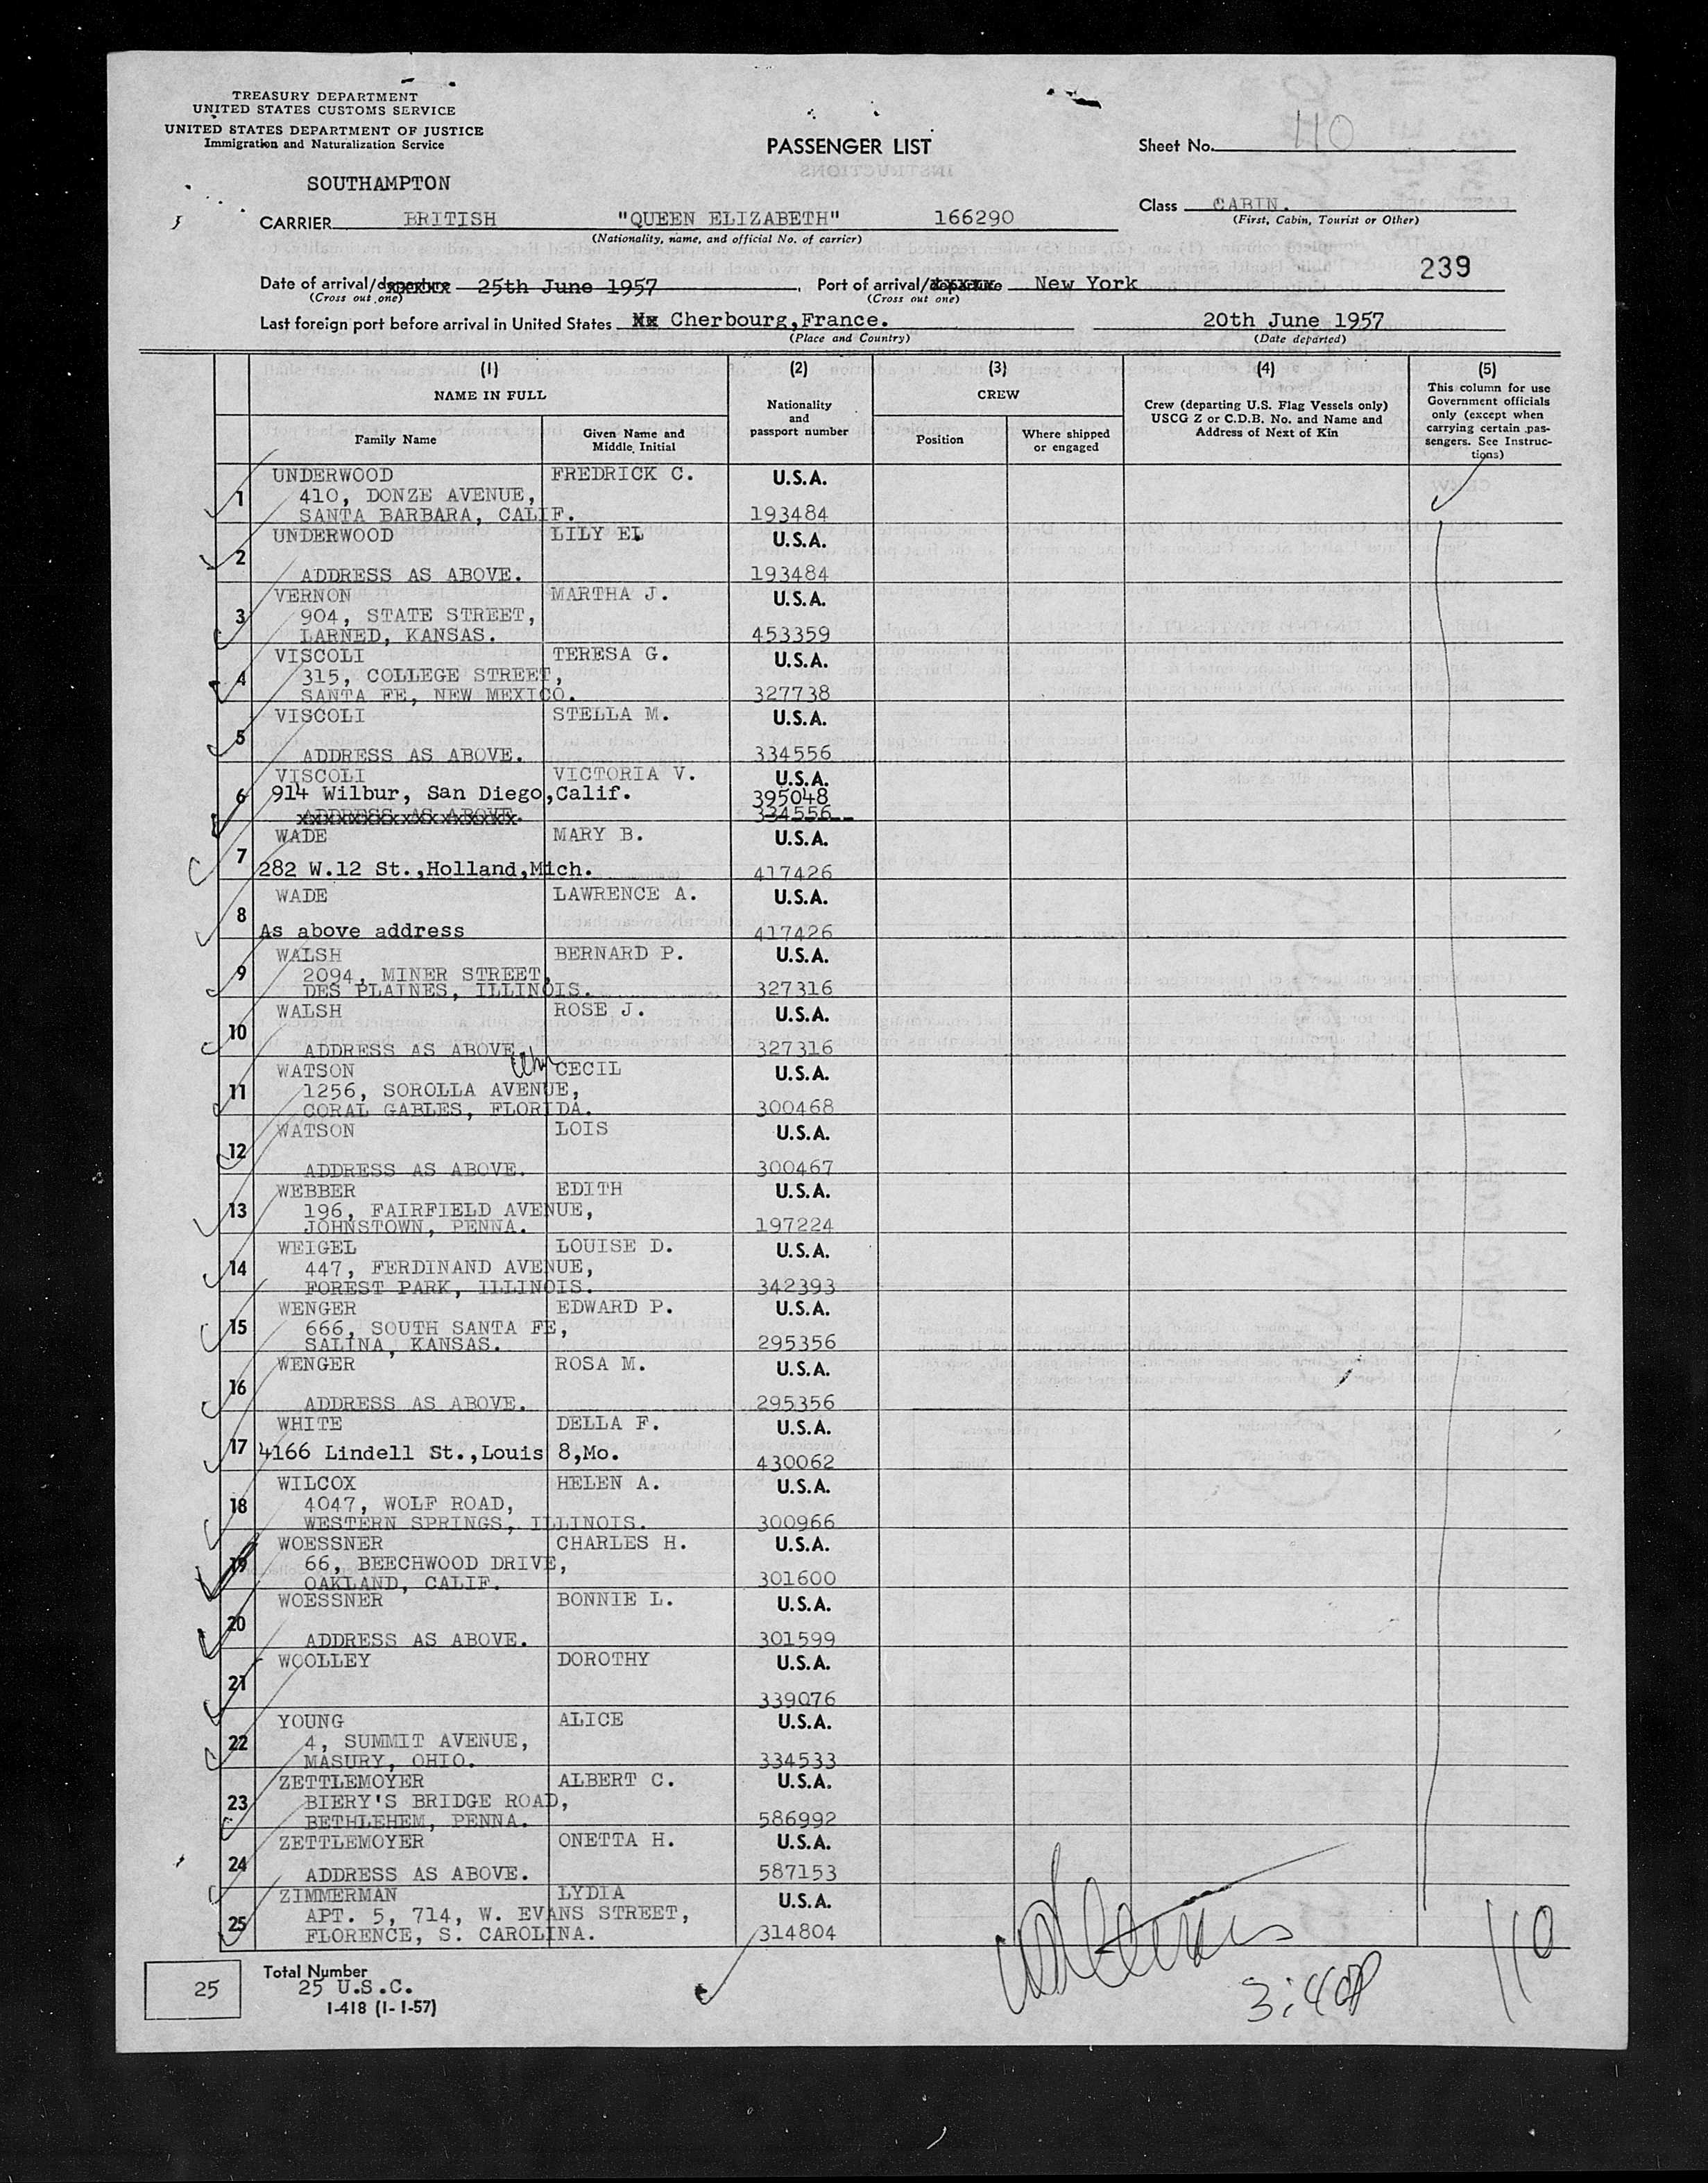 TREASURY DEPARTMENT
UNITED STATES CUSTOMS SERVICE
UNITED STATES DEPARTMENT OF JUSTICE
Immigration and Naturalization Service
PASSENGER LIST
Sheet No. 110
SOUTHAMPTON
CARRIER BRITISH "QUEEN ELIZABETH" 166290
(Nationality, name, and official No. of carrier)
Class CABIN.
(First, Cabin, Tourist or Other)
239
Date of arrival/departure 25th June 1957
(Cross out one)
Port of arrival/departure New York
(Cross out one)
Last foreign port before arrival in United States Cherbourg,France.
(Place and Country)
20th June 1957
(Date departed)
(1)
NAME IN FULL
Family Name
Given Name and Middle Initial
(2)
Nationality and passport number
(3)
CREW
Position
Where shipped or engaged
(4)
Crew (departing U.S. Flag Vessels only)
USCG Z or C.D.B. No. and Name and
Address of Next of Kin
(5)
This column for use
Government officials
only (except when
carrying certain pas-
sengers. See Instruc-
tions)
1 UNDERWOOD FREDRICK C. U.S.A.
410, DONZE AVENUE,
SANTA BARBARA, CALIF. 193484
2 UNDERWOOD LILY EL U.S.A.
ADDRESS AS ABOVE. 193484
3 VERNON MARTHA J. U.S.A.
904, STATE STREET,
LARNED, KANSAS. 453359
4 VISCOLI TERESA G. U.S.A.
315, COLLEGE STREET,
SANTA FE, NEW MEXICO. 327738
5 VISCOLI STELLA M. U.S.A.
ADDRESS AS ABOVE. 334556
6 VISCOLI VICTORIA V. U.S.A.
914 Wilbur, San Diego,Calif. 395048
ADDRESS AS ABOVE. 334556
7 WADE MARY B. U.S.A.
282 W.12 St.,Holland,Mich. 417426
8 WADE LAWRENCE A. U.S.A.
As above address 417426
9 WALSH BERNARD P. U.S.A.
2094, MINER STREET,
DES PLAINES, ILLINOIS. 327316
10 WALSH ROSE J. U.S.A.
ADDRESS AS ABOVE. 327316
11 WATSON CECIL U.S.A.
1256, SOROLLA AVENUE,
CORAL GABLES, FLORIDA. 300468
12 WATSON LOIS U.S.A.
ADDRESS AS ABOVE. 300467
13 WEBBER EDITH U.S.A.
196, FAIRFIELD AVENUE,
JOHNSTOWN, PENNA. 197224
14 WEIGEL LOUISE D. U.S.A.
447, FERDINAND AVENUE,
FOREST PARK, ILLINOIS. 342393
15 WENGER EDWARD P. U.S.A.
666, SOUTH SANTA FE,
SALINA, KANSAS. 295356
16 WENGER ROSA M. U.S.A.
ADDRESS AS ABOVE. 295356
17 WHITE DELLA F. U.S.A.
4166 Lindell St.,Louis 8,Mo. 430062
18 WILCOX HELEN A. U.S.A.
4047, WOLF ROAD,
WESTERN SPRINGS, ILLINOIS. 300966
19 WOESSNER CHARLES H. U.S.A.
66, BEECHWOOD DRIVE,
OAKLAND, CALIF. 301600
20 WOESSNER BONNIE L. U.S.A.
ADDRESS AS ABOVE. 301599
21 WOOLLEY DOROTHY U.S.A.
339076
22 YOUNG ALICE U.S.A.
4, SUMMIT AVENUE,
MASURY, OHIO. 334533
23 ZETTLEMOYER ALBERT C. U.S.A.
BIERY'S BRIDGE ROAD,
BETHLEHEM, PENNA. 586992
24 ZETTLEMOYER ONETTA H. U.S.A.
ADDRESS AS ABOVE. 587153
25 ZIMMERMAN LYDIA U.S.A.
APT. 5, 714, W. EVANS STREET,
FLORENCE, S. CAROLINA. 314804
25
Total Number
25 U.S.C.
I-418 (1-1-57)
3:40P
110